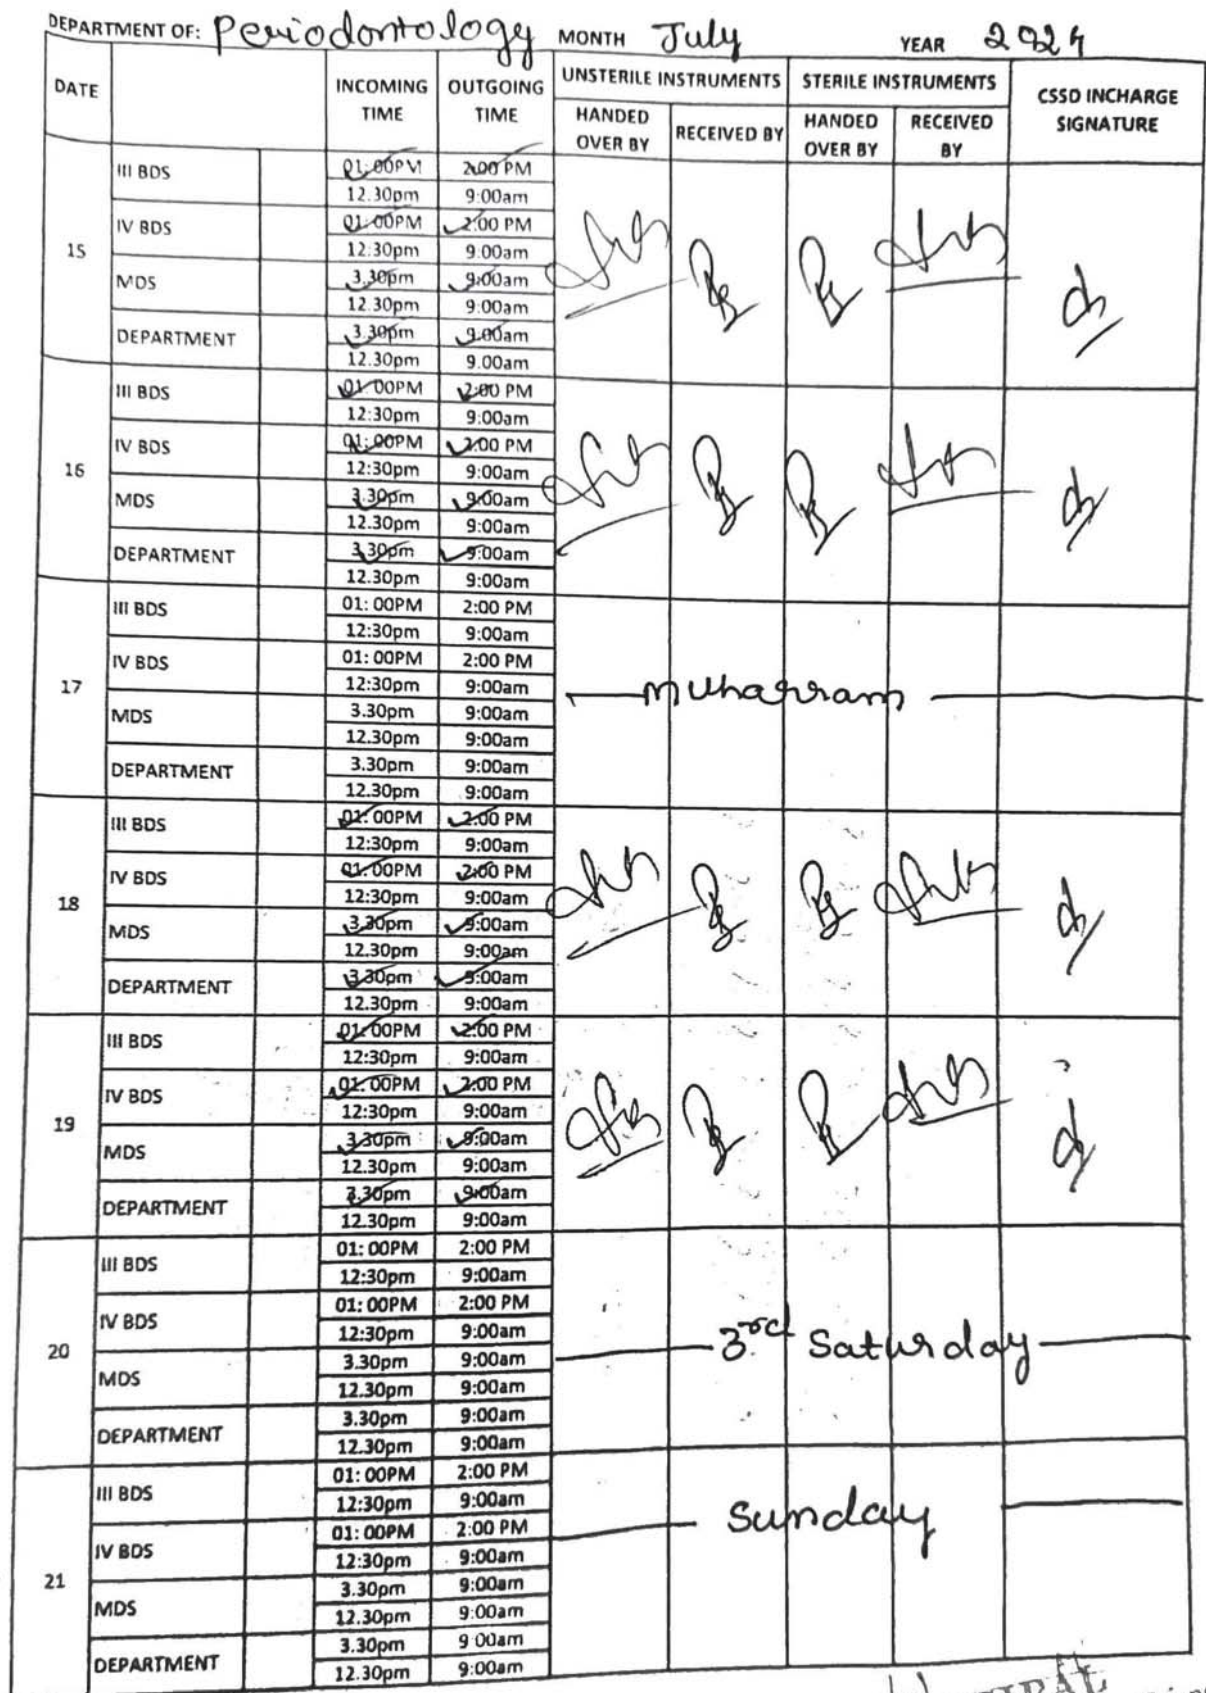 DEPARTMENT OF: Periodontology MONTH July YEAR 2024
DATE INCOMING TIME OUTGOING TIME UNSTERILE INSTRUMENTS STERILE INSTRUMENTS CSSD INCHARGE SIGNATURE
HANDED OVER BY RECEIVED BY HANDED OVER BY RECEIVED BY
15
III BDS 01:00PM 2:00 PM
12.30pm 9:00am
IV BDS 01:00PM 2:00 PM
12:30pm 9:00am
MDS 3.30pm 9:00am
12.30pm 9:00am
DEPARTMENT 3.30pm 9:00am
12.30pm 9:00am
16
III BDS 01:00PM 2:00 PM
12:30pm 9:00am
IV BDS 01:00PM 2:00 PM
12:30pm 9:00am
MDS 3.30pm 9:00am
12.30pm 9:00am
DEPARTMENT 3.30pm 9:00am
12.30pm 9:00am
17
III BDS 01:00PM 2:00 PM
12:30pm 9:00am
IV BDS 01:00PM 2:00 PM
12:30pm 9:00am
Muharram
MDS 3.30pm 9:00am
12.30pm 9:00am
DEPARTMENT 3.30pm 9:00am
12.30pm 9:00am
18
III BDS 01:00PM 2:00 PM
12:30pm 9:00am
IV BDS 01:00PM 2:00 PM
12:30pm 9:00am
MDS 3.30pm 9:00am
12.30pm 9:00am
DEPARTMENT 3.30pm 9:00am
12.30pm 9:00am
19
III BDS 01:00PM 2:00 PM
12:30pm 9:00am
IV BDS 01:00PM 2:00 PM
12:30pm 9:00am
MDS 3.30pm 9:00am
12.30pm 9:00am
DEPARTMENT 3.30pm 9:00am
12.30pm 9:00am
20
III BDS 01:00PM 2:00 PM
12:30pm 9:00am
IV BDS 01:00PM 2:00 PM
12:30pm 9:00am
3rd Saturday
MDS 3.30pm 9:00am
12.30pm 9:00am
DEPARTMENT 3.30pm 9:00am
12.30pm 9:00am
21
III BDS 01:00PM 2:00 PM
12:30pm 9:00am
Sunday
IV BDS 01:00PM 2:00 PM
12:30pm 9:00am
MDS 3.30pm 9:00am
12.30pm 9:00am
DEPARTMENT 3.30pm 9 00am
12.30pm 9:00am